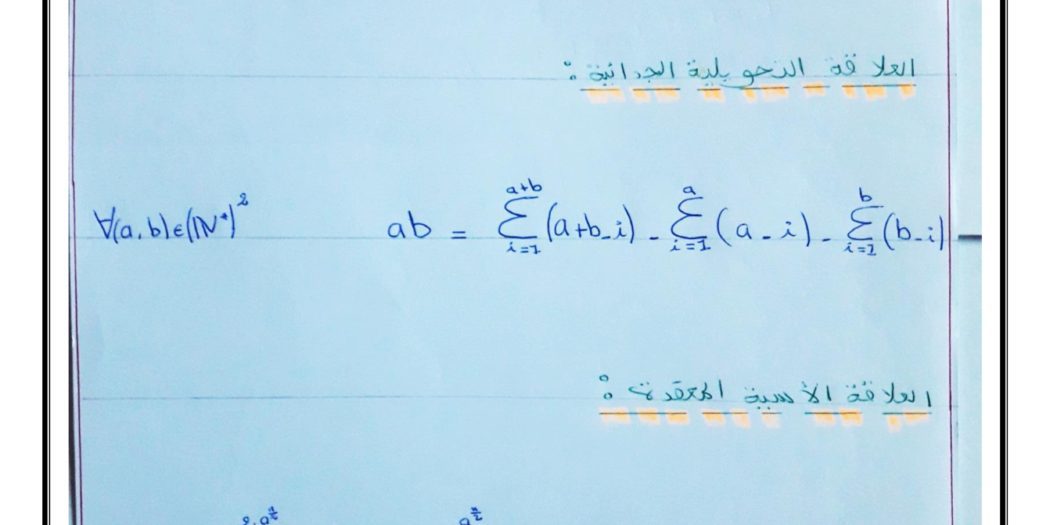 العلاقة التحويلية الجدائية :
∀(a,b)∈(ℕ*)² ab = ∑_{i=1}^{a+b}(a+b-i) - ∑_{i=1}^{a}(a-i) - ∑_{i=1}^{b}(b-i)
العلاقة الأسية المعقدة :